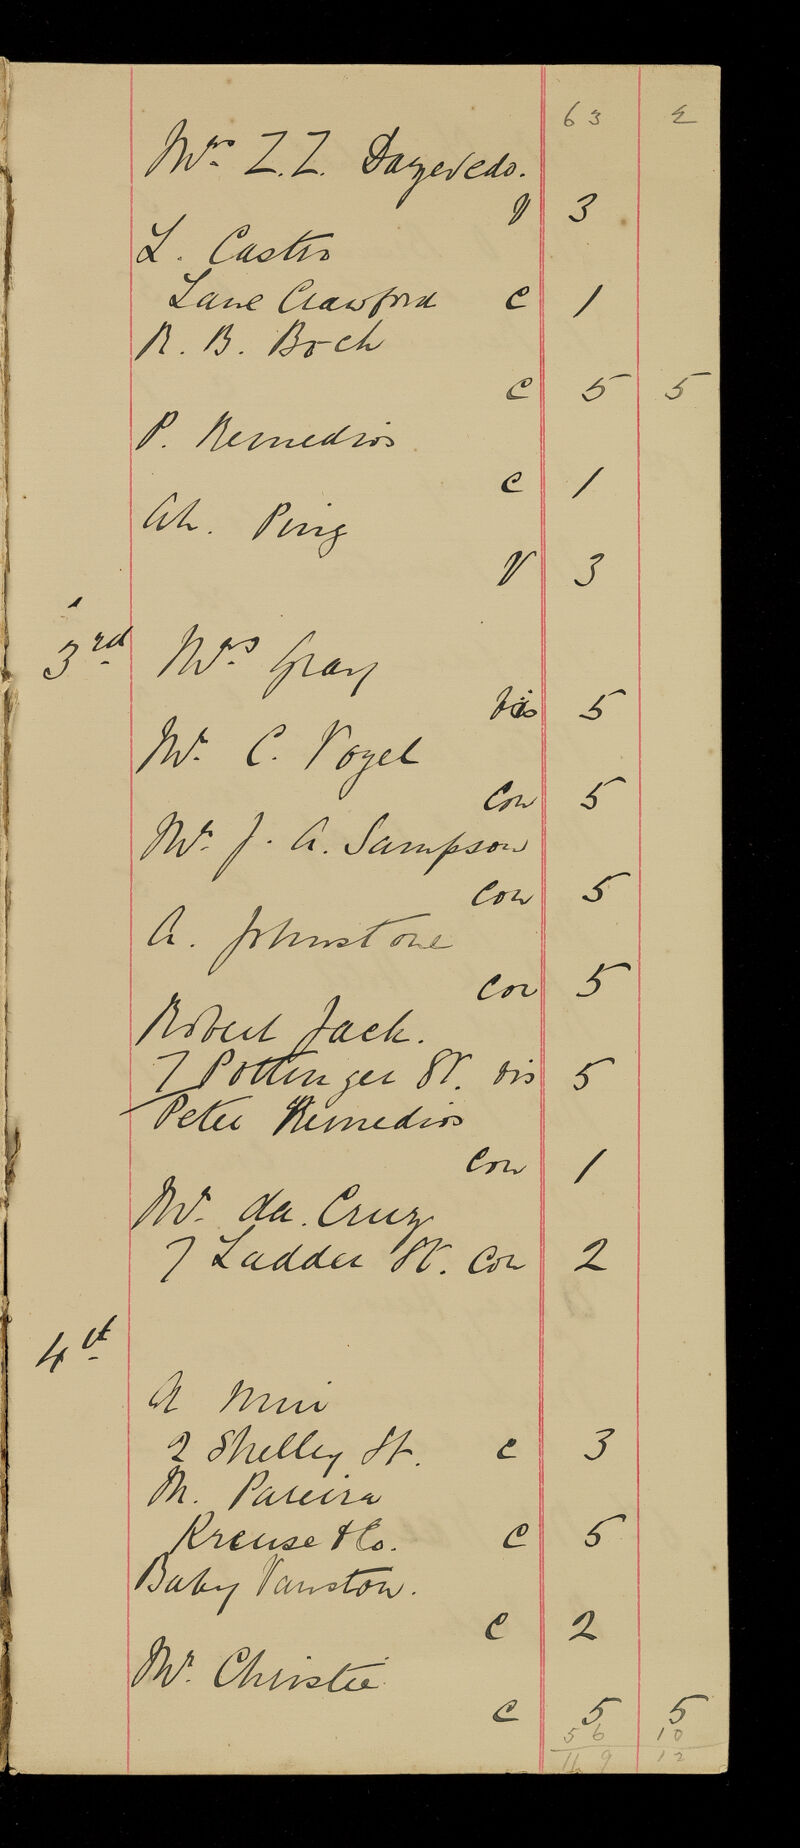 63 2
Mrs Z.Z. Dazevedo.
V 3
L. Castro
Lane Crawford C 1
R. B. Boch
C 5 5
P. Remedios
C 1
Ah. Ping
V 3
3rd Mrs Gray
vis 5
Mr. C. Vogel
Con 5
Mr. J. A. Sampson
Con 5
A. Johnstone
Con 5
Robert Jack.
7 Pottinger St. vis 5
Peter Remedios
Con 1
Mr. da. Cruz
7 Ladder St. Con 2
4th
A Muir
2 Shelley St. C 3
M. Pareira
Kreuse & Co. C 5
Baby Vanstow.
C 2
Mr. Christie
C 5 5
56 10
9 12